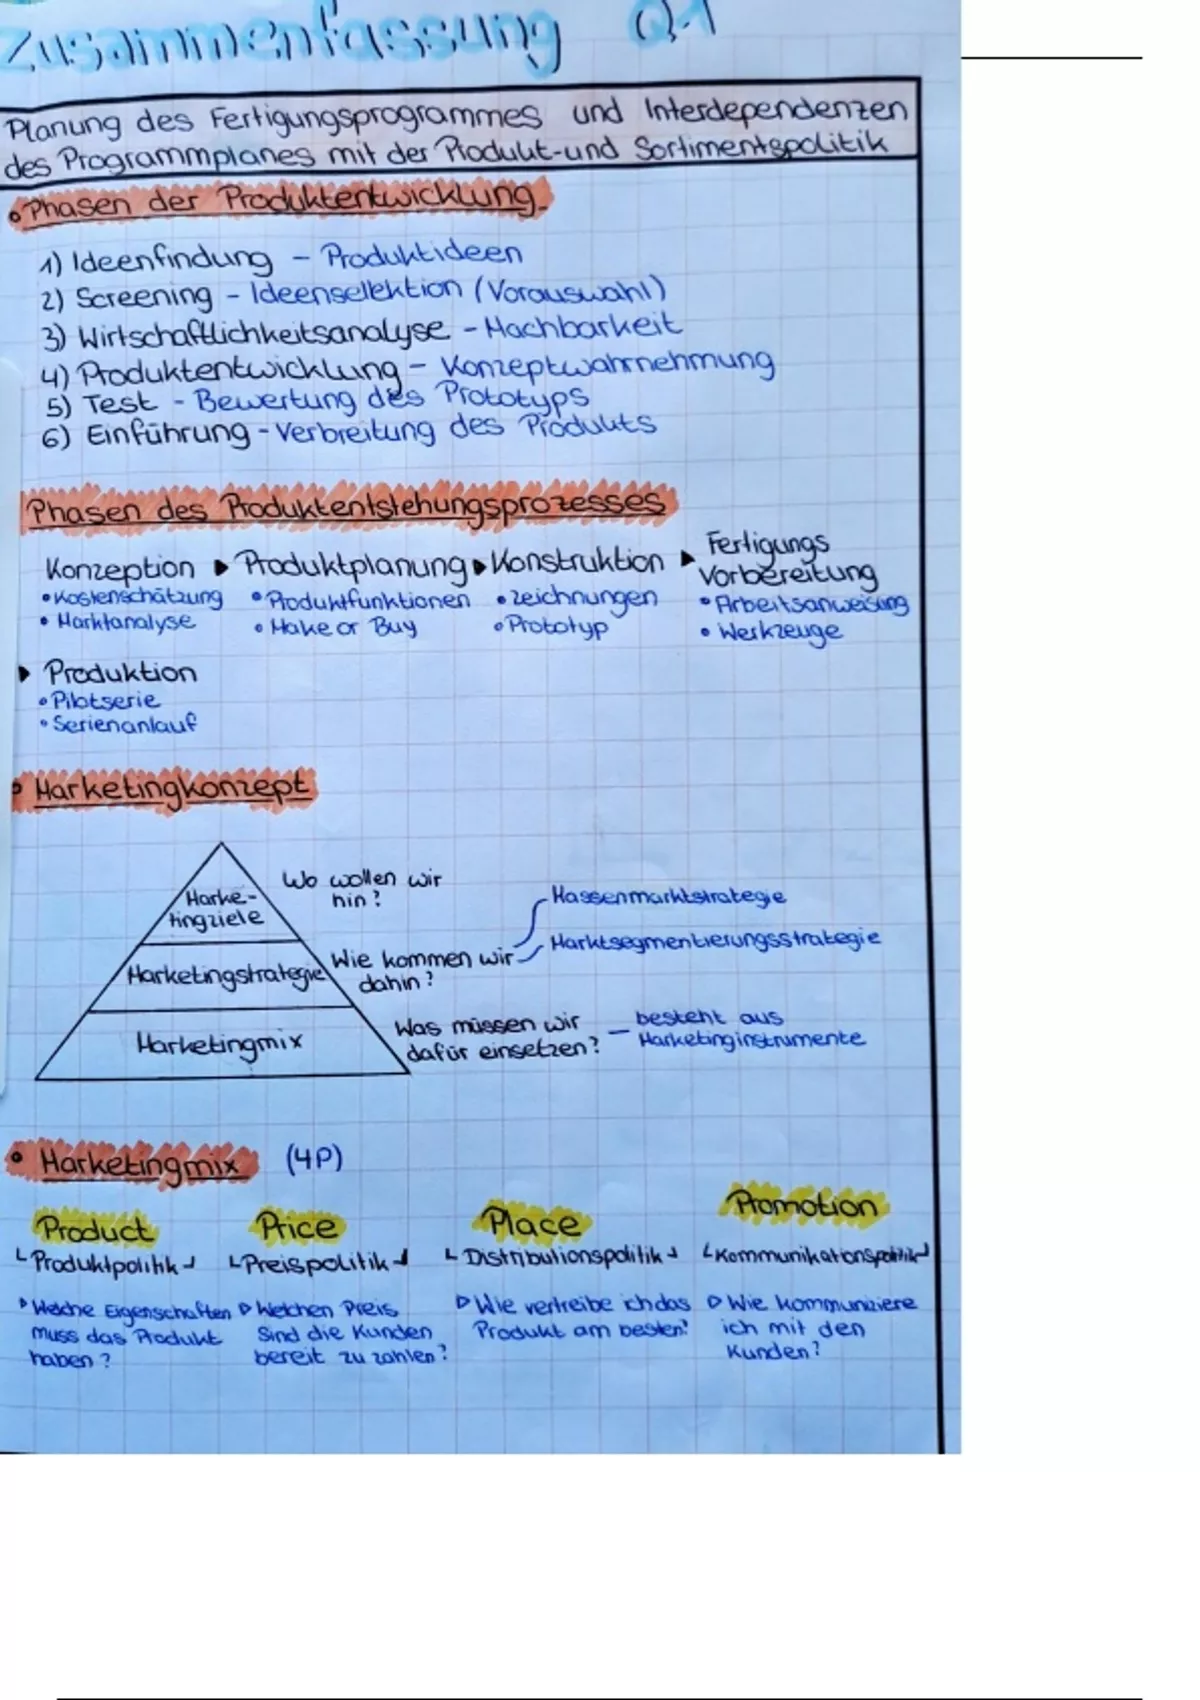 Zusammenfassung Q1
Planung des Fertigungsprogrammes und Interdependenzen
des Programmplanes mit der Produkt-und Sortimentspolitik
• Phasen der Produktentwicklung
1) Ideenfindung - Produktideen
2) Screening - Ideenselektion (Vorauswahl)
3) Wirtschaftlichkeitsanalyse - Machbarkeit
4) Produktentwicklung - Konzeptwahrnehmung
5) Test - Bewertung des Prototyps
6) Einführung - Verbreitung des Produkts
Phasen des Produktentstehungsprozesses
Konzeption ▶ Produktplanung ▶ Konstruktion ▶ Fertigungs
Vorbereitung
• Kostenschätzung • Produktfunktionen • Zeichnungen • Arbeitsanweisung
• Marktanalyse • Make or Buy • Prototyp • Werkzeuge
▶ Produktion
• Pilotserie
• Serienanlauf
• Marketingkonzept
Marke-
tingziele
Wo wollen wir
hin?
Marketingstrategie
Wie kommen wir
dahin?
Massenmarktstrategie
Marktsegmentierungsstrategie
Marketingmix
Was müssen wir
dafür einsetzen? - besteht aus
Marketinginstrumente
• Marketingmix (4P)
Product Price Place Promotion
Produktpolitik Preispolitik Distributionspolitik Kommunikationspolitik
▷ Welche Eigenschaften
muss das Produkt
haben?
▷ Welchen Preis
sind die Kunden
bereit zu zahlen?
▷ Wie vertreibe ich das
Produkt am besten?
▷ Wie kommuniziere
ich mit den
Kunden?